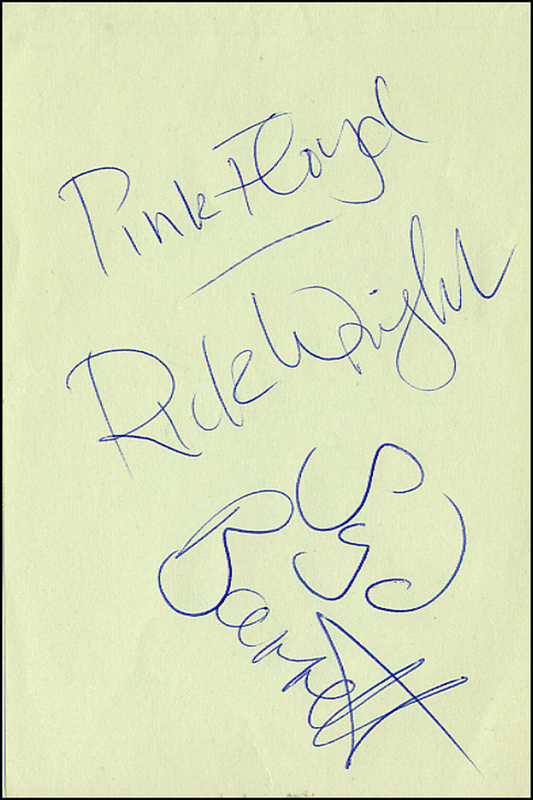 Pink Floyd
Rick Wright
Syd
Barrett